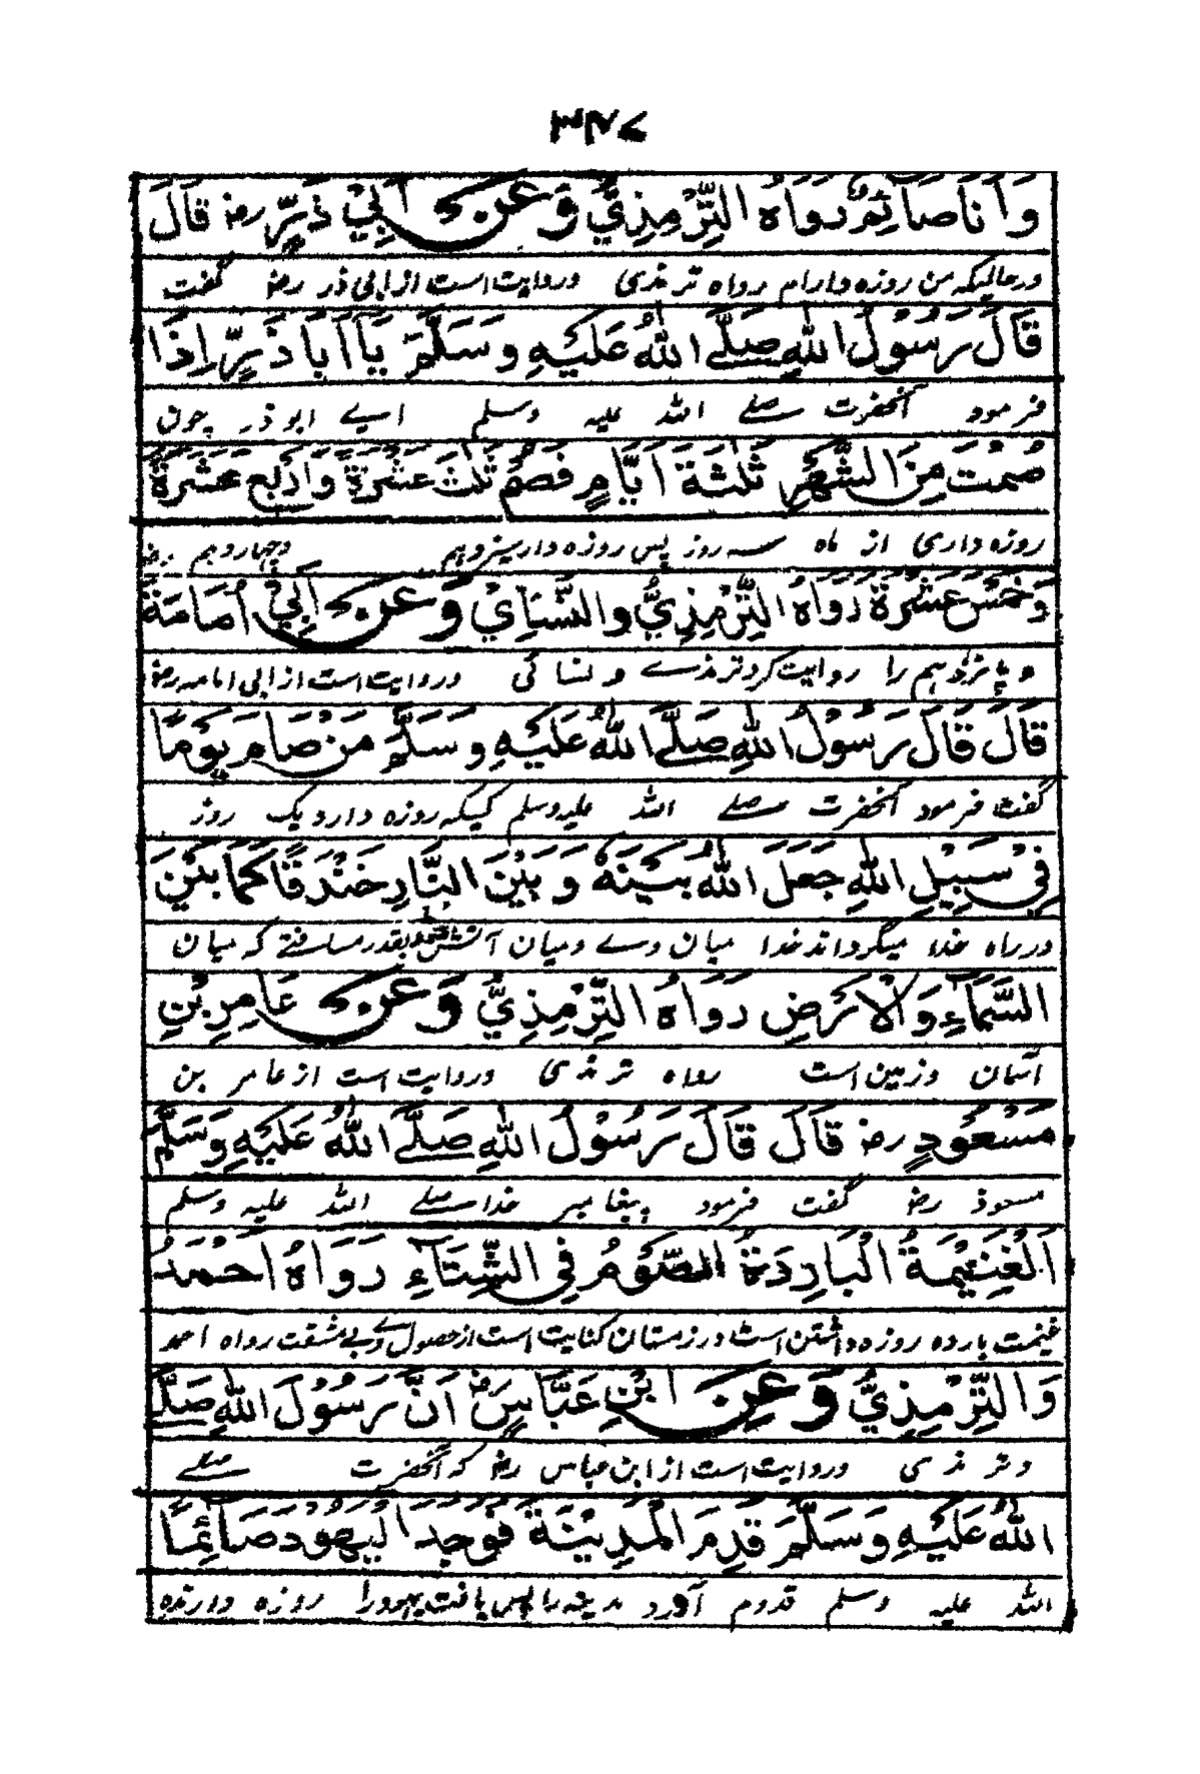 ۳۸۷
وَاَنَا صَآئِمٌ رَوَاهُ التِّرْمِذِيُّ وَعَنْ اَبِيْ ذَرٍّ رض قَالَ
درحالیکه من روزه دارام رواه ترمذی وروایت است از ابی ذر رض گفت
قَالَ رَسُوْلُ اللهِ صَلَّے اللهُ عَلَيْهِ وَسَلَّمَ يَآ اَبَا ذَرٍّ اِذَا
فرمود آنحضرت صلے الله علیه وسلم اے ابو ذر چون
صُمْتَ مِنَ الشَّهْرِ ثَلٰثَةَ اَيَّامٍ فَصُمْ ثَلٰثَ عَشْرَةَ وَاَرْبَعَ عَشْرَةَ
روزه داری از ماه سه روز پس روزه دار سیزدہم وچہاردہم
وَخَمْسَ عَشْرَةَ رَوَاهُ التِّرْمِذِيُّ وَالنَّسَائِيُّ وَعَنْ اَبِيْ اُمَامَةَ
و پانزدہم را روایت کرد ترمذے و نسائی وروایت است از ابی امامه رض
قَالَ قَالَ رَسُوْلُ اللهِ صَلَّے اللهُ عَلَيْهِ وَسَلَّمَ مَنْ صَامَ يَوْمًا
گفت فرمود آنحضرت صلے الله علیه وسلم کسیکه روزه دارد یک روز
فِيْ سَبِيْلِ اللهِ جَعَلَ اللهُ بَيْنَهُ وَبَيْنَ النَّارِ خَنْدَقًا كَمَا بَيْنَ
درراه خدا میگرداند خدا میان وے ومیان آتش بقدر مسافتے که میان
السَّمَآءِ وَالْاَرْضِ رَوَاهُ التِّرْمِذِيُّ وَعَنْ عَامِرِ بْنِ
آسمان وزمین است رواه ترمذی وروایت است از عامر بن
مَسْعُوْدٍ رض قَالَ قَالَ رَسُوْلُ اللهِ صَلَّے اللهُ عَلَيْهِ وَسَلَّمَ
مسعود رض گفت فرمود پیغامبر خدا صلے الله علیه وسلم
اَلْغَنِيْمَةُ الْبَارِدَةُ الصَّوْمُ فِي الشِّتَآءِ رَوَاهُ اَحْمَدُ
غنیمت بارده روزه داشتن است در زمستان کنایت است از حصول وبے مشقت رواه احمد
وَالتِّرْمِذِيُّ وَعَنِ ابْنِ عَبَّاسٍ رض اَنَّ رَسُوْلَ اللهِ صَلَّے
وترمذی وروایت است از ابن عباس رض که آنحضرت صلے
اللهُ عَلَيْهِ وَسَلَّمَ قَدِمَ الْمَدِيْنَةَ فَوَجَدَ الْيَهُوْدَ صَآئِمًا
الله علیه وسلم قدوم آورد مدینه را پس یافت یہود را روزه دارنده